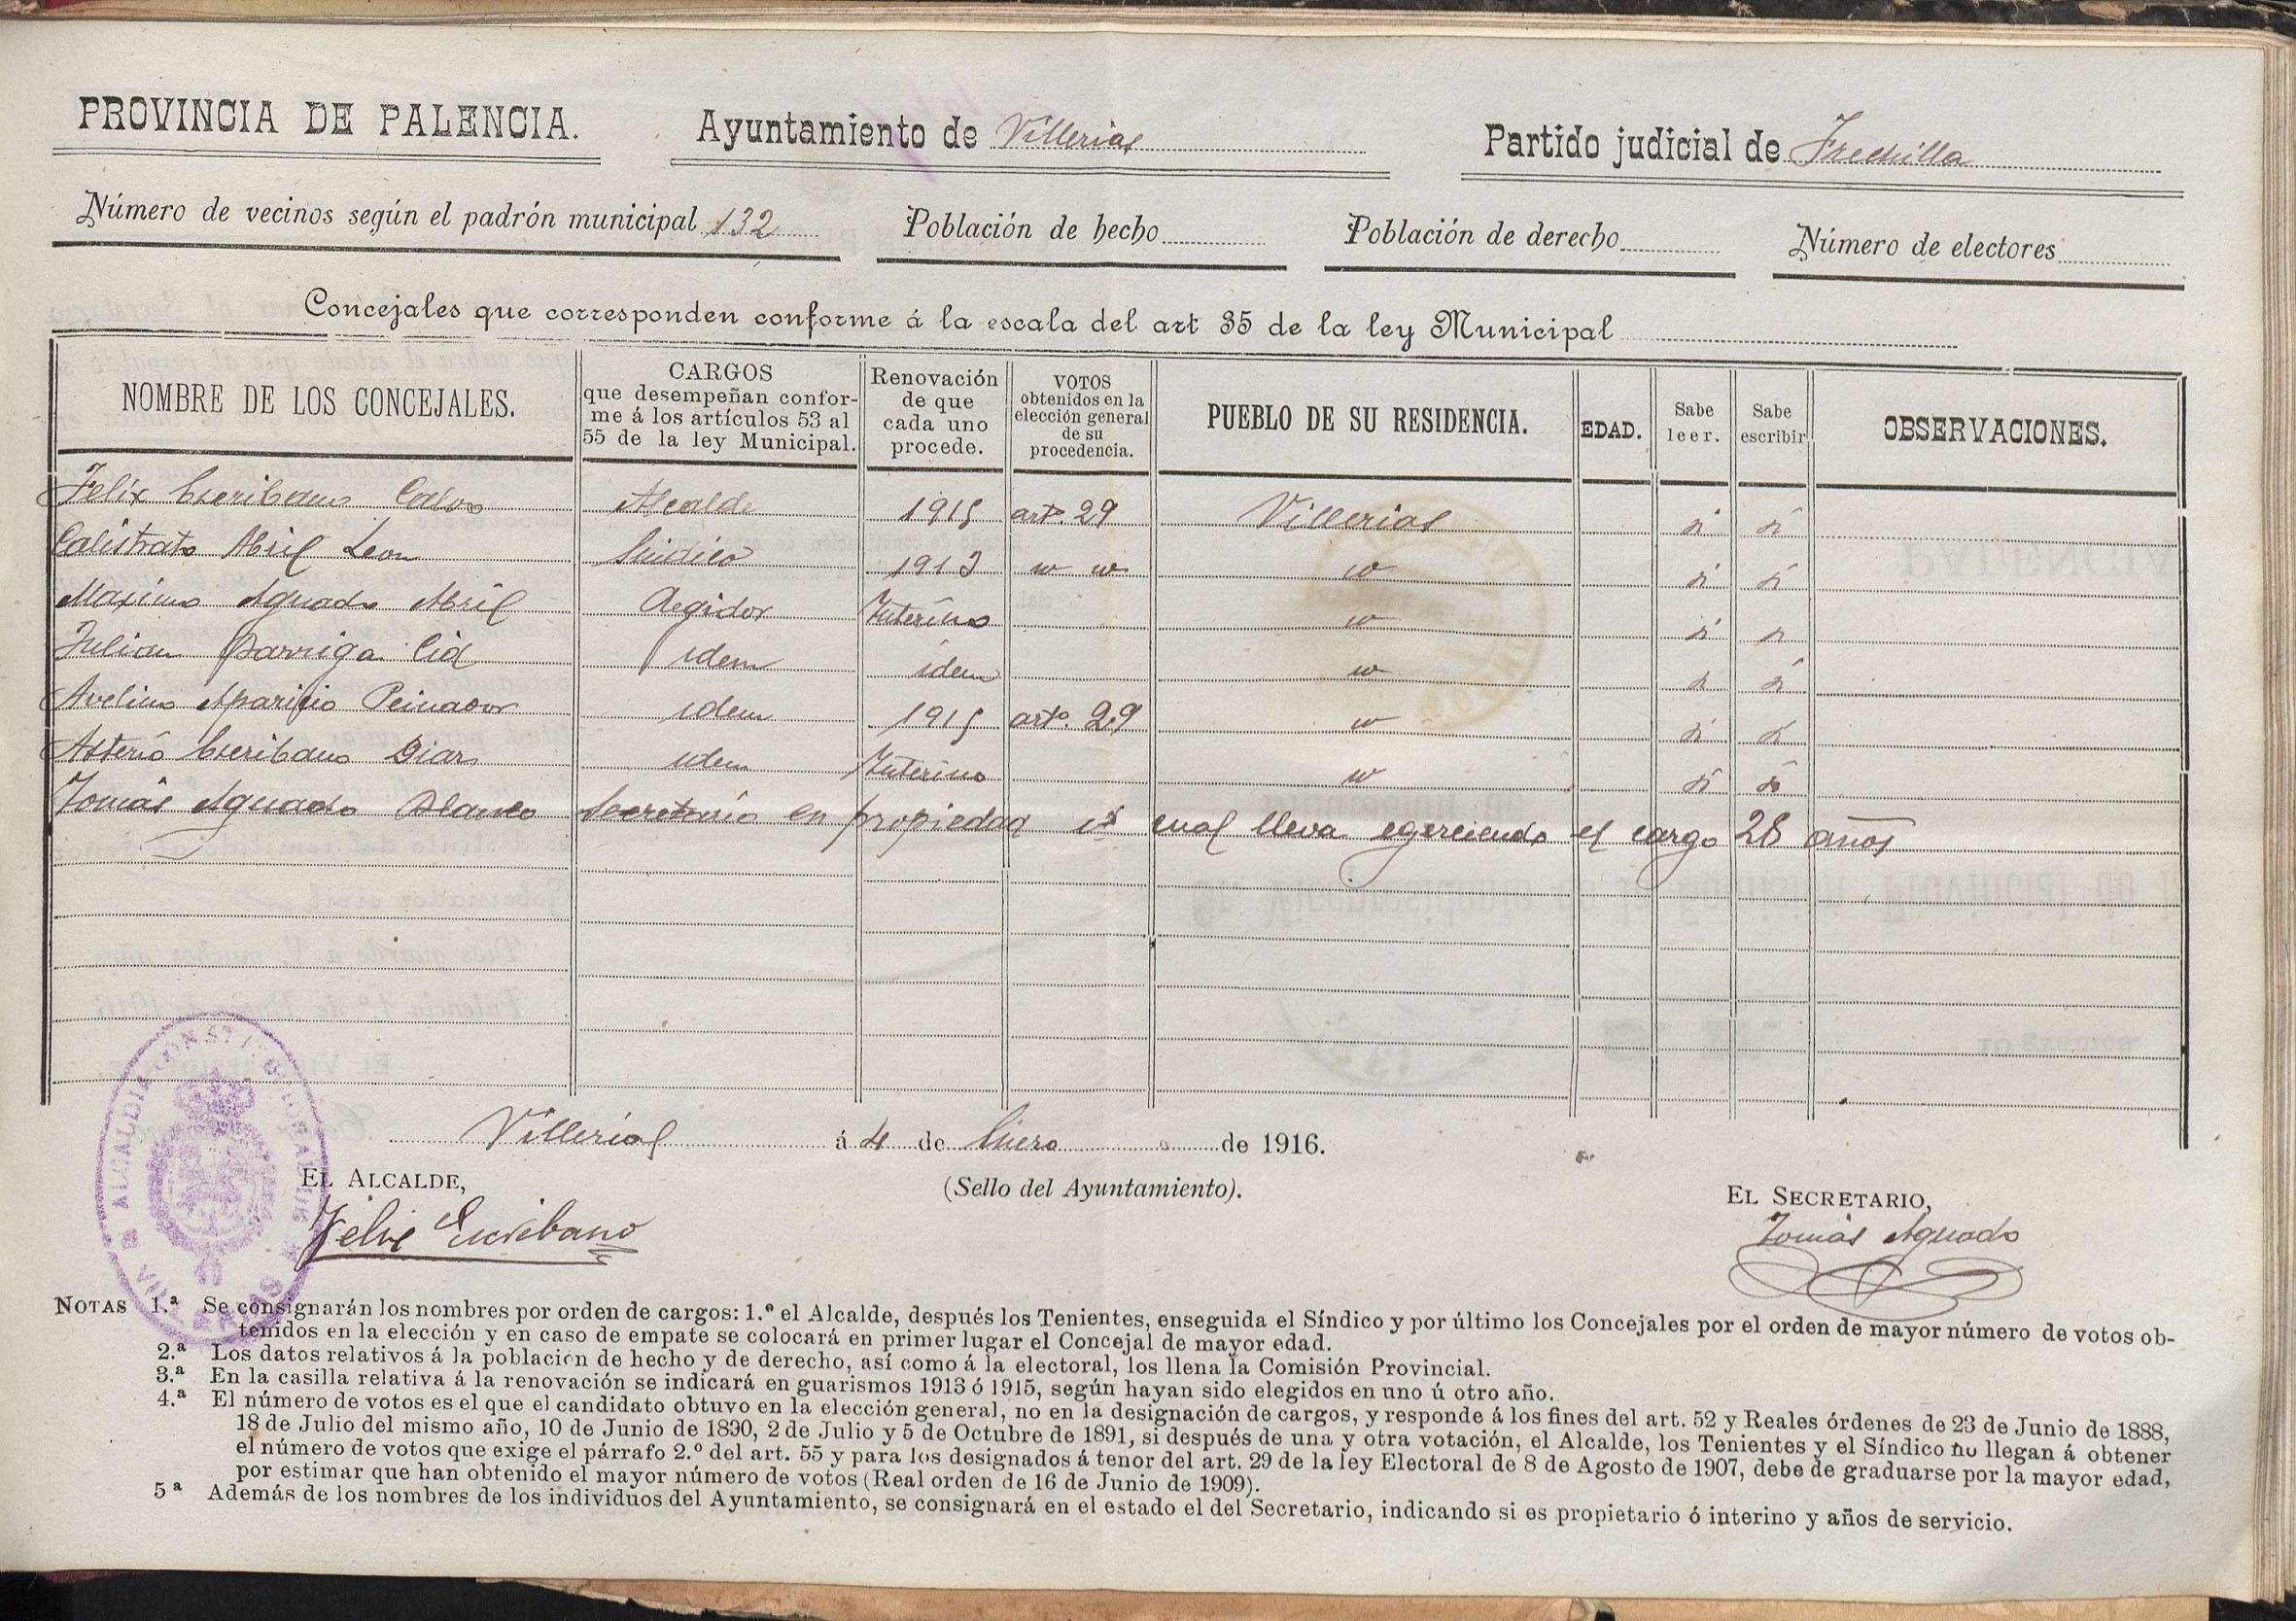 PROVINCIA DE PALENCIA. Ayuntamiento de Villerias Partido judicial de Frechilla
Número de vecinos según el padrón municipal 132 Población de hecho Población de derecho Número de electores
Concejales que corresponden conforme á la escala del art 35 de la ley Municipal
NOMBRE DE LOS CONCEJALES. CARGOS que desempeñan conforme á los artículos 53 al 55 de la ley Municipal. Renovación de que cada uno procede. VOTOS obtenidos en la elección general de su procedencia. PUEBLO DE SU RESIDENCIA. EDAD. Sabe leer. Sabe escribir OBSERVACIONES.
Felix Escribano Calvo Alcalde 1915 artº. 29 Villerias si si
Calistrato Abril Leon Sindico 1913 " " " si si
Maximo Aguado Abril Regidor Interino " si si
Julian Barriga Cid idem idem " si si
Avelino Aparicio Peinador idem 1915 artº. 29 " si si
Asterio Escribano Dias idem Interino " si si
Tomás Aguado Blanco Secretario en propiedad el cual lleva egerciendo el cargo 28 años
Villerias á 4 de Enero de 1916.
EL ALCALDE, (Sello del Ayuntamiento). EL SECRETARIO,
Felix Escribano Tomás Aguado
ALCALDIA CONSTITUCIONAL DE VILLERIAS
NOTAS 1.ª Se consignarán los nombres por orden de cargos: 1.º el Alcalde, después los Tenientes, enseguida el Síndico y por último los Concejales por el orden de mayor número de votos ob-
tenidos en la elección y en caso de empate se colocará en primer lugar el Concejal de mayor edad.
2.ª Los datos relativos á la población de hecho y de derecho, así como á la electoral, los llena la Comisión Provincial.
3.ª En la casilla relativa á la renovación se indicará en guarismos 1913 ó 1915, según hayan sido elegidos en uno ú otro año.
4.ª El número de votos es el que el candidato obtuvo en la elección general, no en la designación de cargos, y responde á los fines del art. 52 y Reales órdenes de 23 de Junio de 1888,
18 de Julio del mismo año, 10 de Junio de 1890, 2 de Julio y 5 de Octubre de 1891, si después de una y otra votación, el Alcalde, los Tenientes y el Síndico no llegan á obtener
el número de votos que exige el párrafo 2.º del art. 55 y para los designados á tenor del art. 29 de la ley Electoral de 8 de Agosto de 1907, debe de graduarse por la mayor edad,
por estimar que han obtenido el mayor número de votos (Real orden de 16 de Junio de 1909).
5ª Además de los nombres de los individuos del Ayuntamiento, se consignará en el estado el del Secretario, indicando si es propietario ó interino y años de servicio.